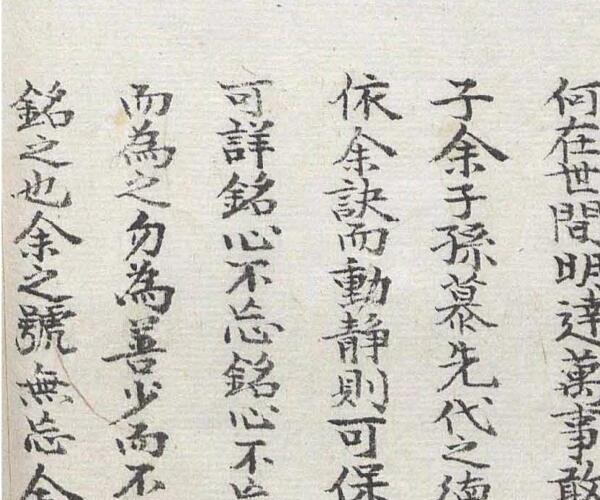 何在世間明達萬事敢
子余子孫慕先代之德
依余訣而動靜則可保
可詳銘心不忘銘心不忘
而為之勿為善少而不
銘之也余之號無忘余